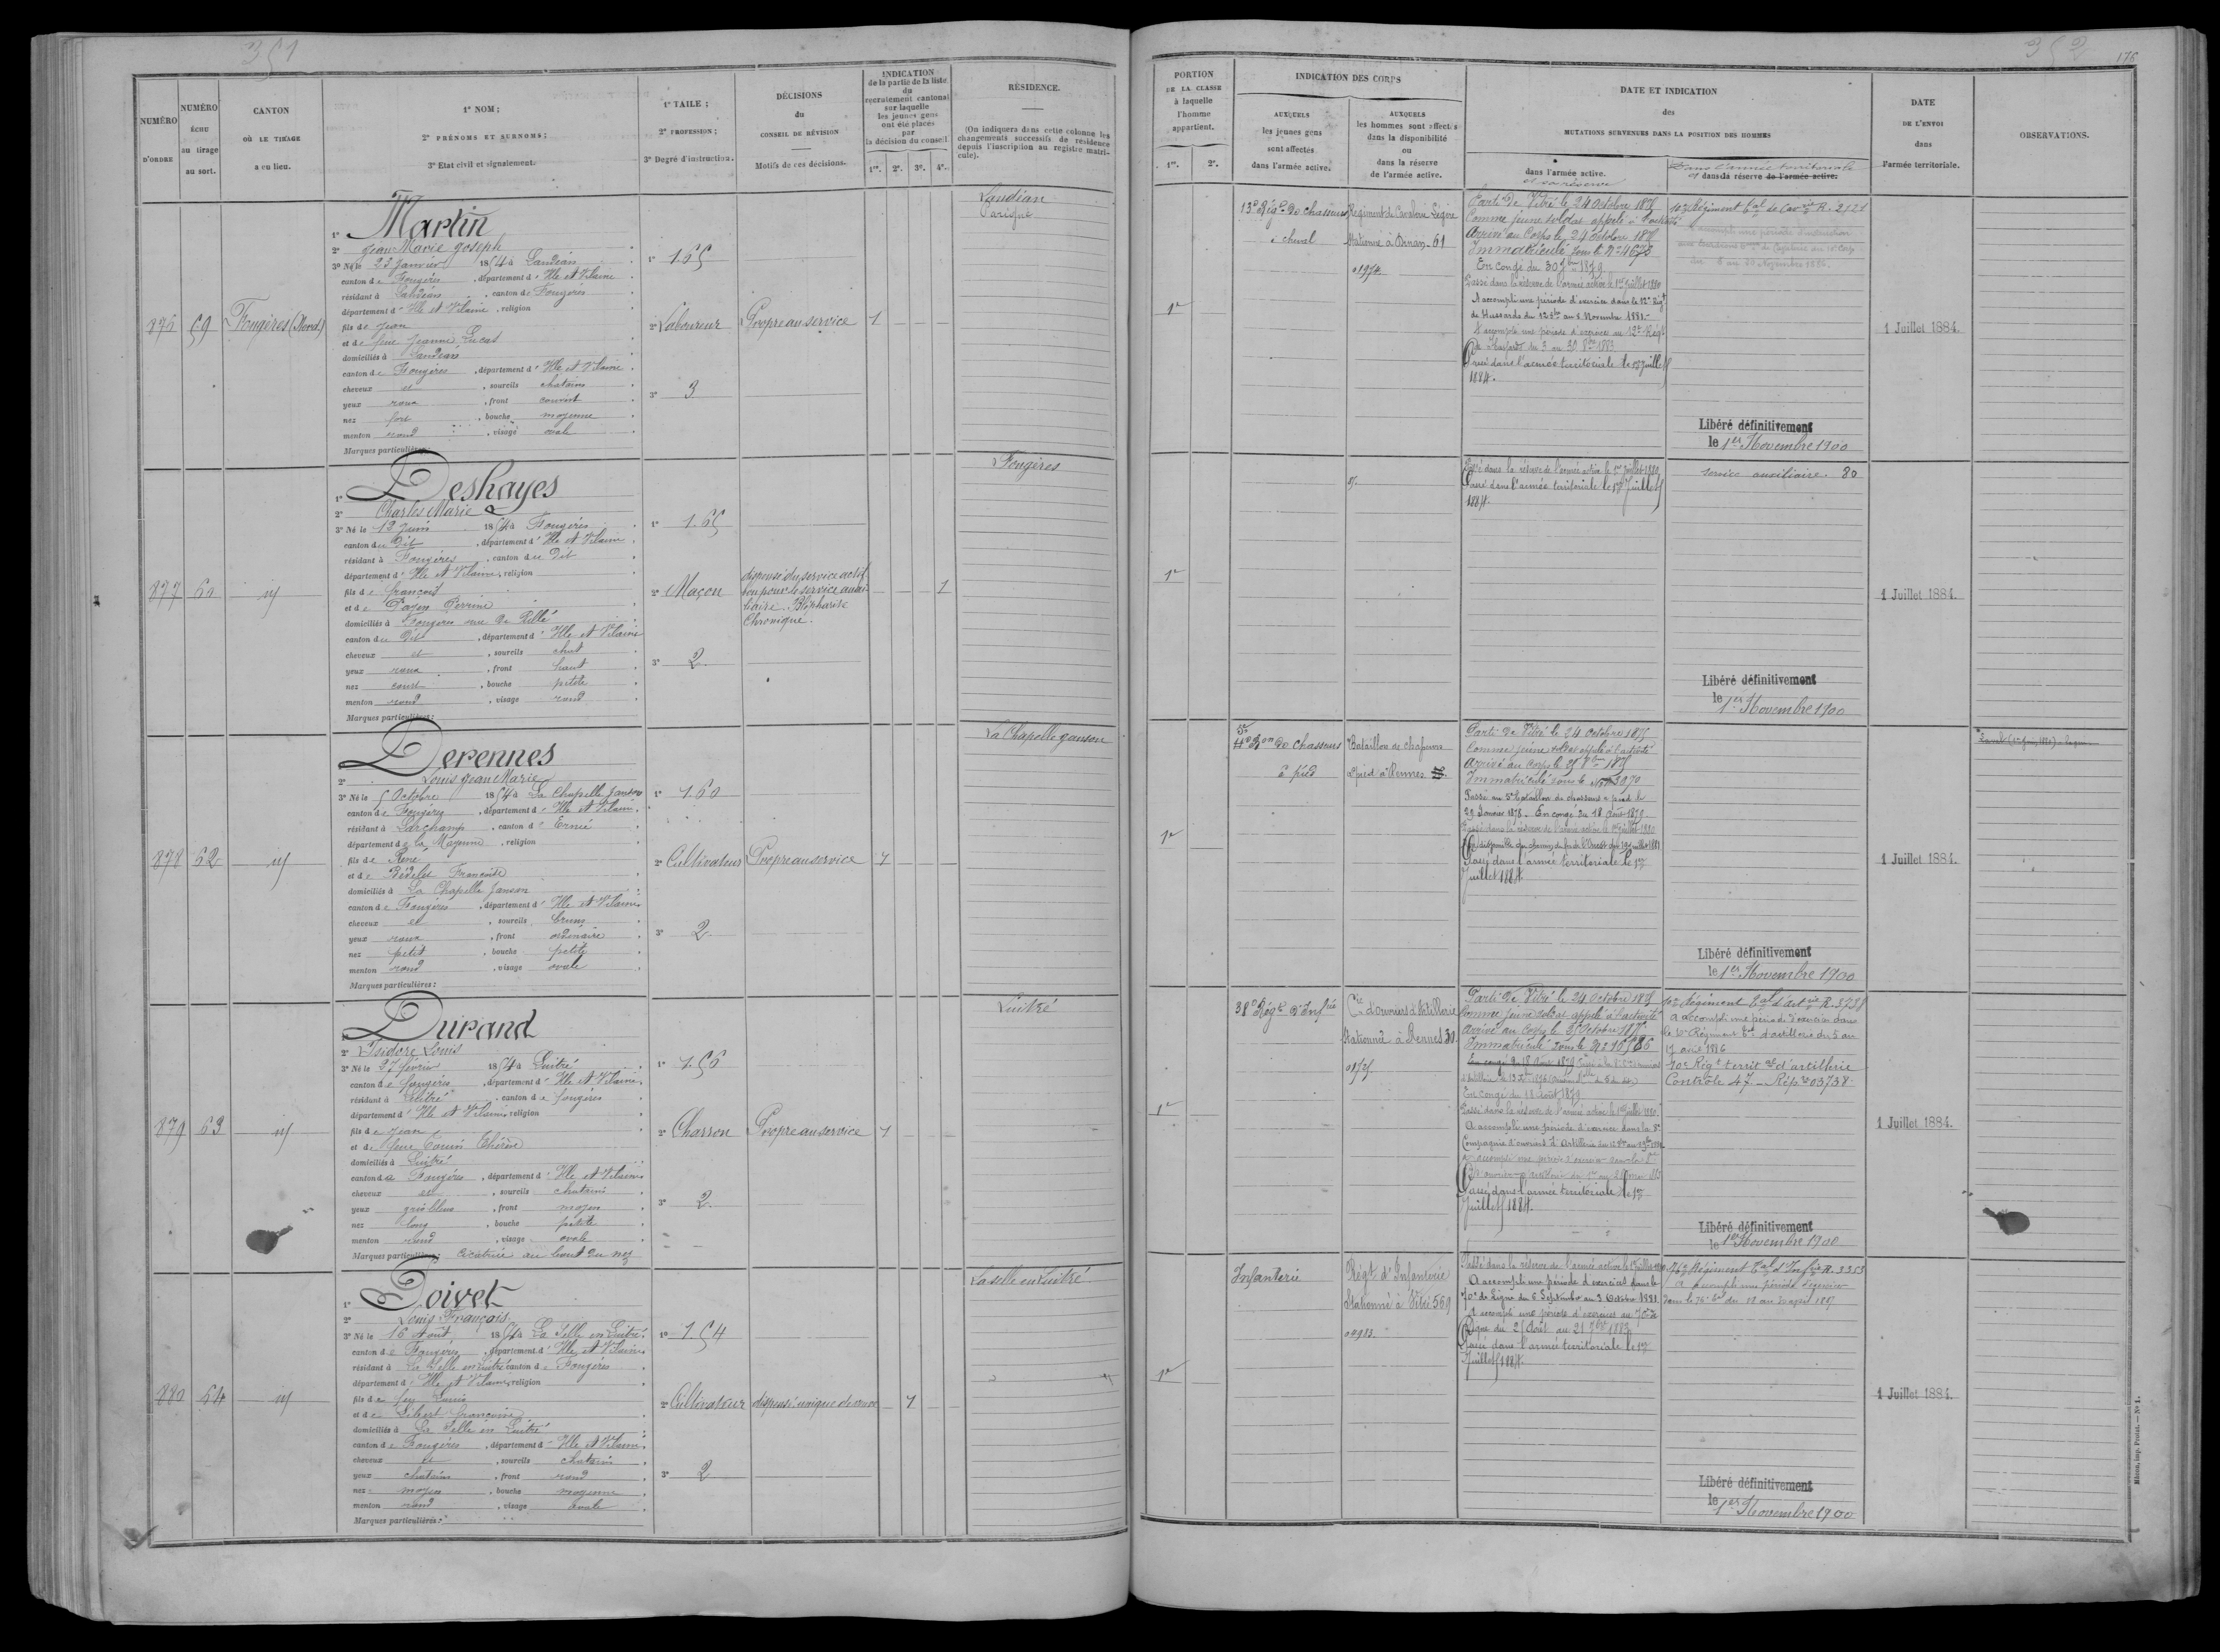 351
NUMÉRO D'ORDRE
NUMÉRO ÉCHU au tirage au sort.
CANTON OÙ LE TIRAGE a eu lieu.
1° NOM ;
2° PRÉNOMS ET SURNOMS ;
3° Etat civil et signalement.
1° TAILE ;
2° PROFESSION ;
3° Degré d'instruction.
DÉCISIONS du CONSEIL DE RÉVISION
Motifs de ces décisions.
INDICATION de la partie de la liste du recrutement cantonal sur laquelle les jeunes gens ont été placés par la décision du conseil
1re. 2e. 3e. 4e.
RÉSIDENCE.
(On indiquera dans cette colonne les changements successifs de résidence depuis l'inscription au registre matricule).
876 59 Fougères (Nord)
1° Martin
2° Jean Marie Joseph
3° Né le 23 Janvier 1854 à Landéan
canton de Fougères, département d'Ille et Vilaine
résidant à Landéan, canton de Fougères
département d'Ille et Vilaine, religion
fils de Jean
et de feue Jeanne Lucas
domiciliés à Landéan
canton de Fougères, département d'Ille et Vilaine
cheveux et, sourcils chatains
yeux roux, front couvert
nez fort, bouche moyenne
menton rond, visage ovale
Marques particulières:
1° 1.65
2° Laboureur
3° 3
Propre au service
1
Landéan
Parigné
877 60 id
1° Deshayes
2° Charles Marie
3° Né le 12 Juin 1854 à Fougères
canton du Dit, département d'Ille et Vilaine
résidant à Fougères, canton du Dit
département d'Ille et Vilaine, religion
fils de François
et de Pagen Perrine
domiciliés à Fougères rue de Rillé
canton du Dit, département d'Ille et Vilaine
cheveux et, sourcils chat
yeux roux, front haut
nez court, bouche petite
menton rond, visage rond
Marques particulières:
1° 1.65
2° Maçon
3° 2
dispensé du service actif
bon pour le service auxi-
liaire. Blépharite
Chronique.
1
Fougères
878 62 id
Derennes
2° Louis Jean Marie
3° Né le 5 Octobre 1854 à La Chapelle Janson
canton de Fougères, département d'Ille et Vilaine
résidant à Larchamp, canton d'Ernée
département de la Mayenne, religion
fils de René
et de Bédelet Françoise
domiciliés à La Chapelle Janson
canton de Fougères, département d'Ille et Vilaine
cheveux et, sourcils bruns
yeux roux, front ordinaire
nez petit, bouche petite
menton rond, visage ovale
Marques particulières:
1° 1.60
2° Cultivateur
3° 2
Propre au service
1
La Chapelle Janson
879 63 id
Durand
2° Isidore Louis
3° Né le 27 février 1854 à Luitré
canton de Fougères, département d'Ille et Vilaine
résidant à Luitré, canton de Fougères
département d'Ille et Vilaine, religion
fils de Jean
et de feue Thérèse
domiciliés à Luitré
canton de Fougères, département d'Ille et Vilaine
cheveux et, sourcils chatains
yeux gris bleus, front moyen
nez long, bouche petite
menton rond, visage ovale
Marques particulières: Cicatrice au bout du nez
1° 1.56
2° Charron
3° 2
Propre au service
1
Luitré
880 64 id
1° Poivet
2° Louis François
3° Né le 16 Août 1854 à La Selle en Luitré
canton de Fougères, département d'Ille et Vilaine
résidant à La Selle en Luitré canton de Fougères
département d'Ille et Vilaine, religion
fils de feu Louis
et de Françoise
domiciliés à La Selle en Luitré
canton de Fougères, département d'Ille et Vilaine
cheveux et, sourcils chatains
yeux chatains, front rond
nez moyen, bouche moyenne
menton rond, visage ovale
Marques particulières:
1° 1.54
2° Cultivateur
3° 2
dispensé unique de veuve
1
La selle en Luitré
352
176
PORTION DE LA CLASSE à laquelle l'homme appartient.
1re. 2e.
INDICATION DES CORPS
AUXQUELS les jeunes gens sont affectés dans l'armée active.
AUXQUELS les hommes sont affectés dans la disponibilité ou dans la réserve de l'armée active.
DATE ET INDICATION des MUTATIONS SURVENUES DANS LA POSITION DES HOMMES
dans l'armée active.
et sa réserve
Dans l'armée territoriale
et dans sa réserve de l'armée active.
DATE DE L'ENVOI dans l'armée territoriale.
OBSERVATIONS.
1re
13e Régt de Chasseurs
à cheval
Régiment de Cavalerie Légère
Stationné à Dinan. 61
01974
Parti de Vitré le 24 Octobre 1875
Comme jeune soldat appelé à l'activité
Arrivé au Corps le 24 Octobre 1875
Immatriculé sous le N° 4673
En congé du 30 7bre 1879
Passé dans la réserve de l'armée active le 1er Juillet 1880
A accompli une période d'exercice dans le 12e Régt
de Hussards du 12 8bre au 8 Novembre 1881.
A accompli une période d'exercice au 12e Régt
de Hussards du 3 au 30 8bre 1883
Passé dans l'armée territoriale le 1er Juillet
1884.
10e Régiment tal de Cavie R. 2121
Libéré définitivement
le 1er Novembre 1900
1 Juillet 1884.
1re
Passé dans la réserve de l'armée active le 1er Juillet 1880
Passé dans l'armée territoriale le 1er Juillet
1884.
service auxiliaire. 80
Libéré définitivement
le 1er Novembre 1900
1 Juillet 1884.
1re
5e
4e Bon de Chasseurs
à pied
Bataillon de chasseurs
à pied à Rennes
Parti de Vitré le 24 Octobre 1875
Comme jeune soldat appelé à l'activité
Arrivé au Corps le 8bre 1875
Immatriculé sous le N° 3970
Passé au 5e bataillon de chasseurs à pied le
29 Janvier 1878. En congé du 18 Août 1879.
Passé dans la réserve de l'armée active le 1er Juillet 1880
Passé dans l'armée territoriale le 1er
Juillet 1884.
Libéré définitivement
le 1er Novembre 1900
1 Juillet 1884.
1re
38e Régt d'Infrie
Cie d'ouvriers d'Artillerie
Stationnée à Rennes 30.
Parti de Vitré le 24 Octobre 1875
Comme jeune soldat appelé à l'activité
Arrivé au Corps le 25 Octobre 1875
Immatriculé sous le N°
En congé du 18 Août 1879
En congé du 18 Août 1879
Passé dans la réserve de l'armée active le 1er Juillet 1880
A accompli une période d'exercice dans la 3e
Compagnie d'ouvriers d'Artillerie
Passé dans l'armée territoriale le 1er
Juillet 1884.
10e Régiment tal d'artie R. 3738
A accompli une période d'exercice dans
le 10e Régiment tal d'artillerie du 5 au
17 avril 1886
10e Régt territal d'artillerie
Contrôle 47. Rép. 03738.
Libéré définitivement
le 1er Novembre 1900
1 Juillet 1884.
1re
Infanterie
Régt d'Infanterie
Stationné à Vitré 569
00983.
Passé dans la réserve de l'armée active le 1er Juillet 1880
A accompli une période d'exercices dans le
70e de Ligne du 6 Septembre au 3 Octobre 1881.
A accompli une période d'exercices au 70e de
Ligne du 25 Août au 21 7bre 1883
Passé dans l'armée territoriale le 1er
Juillet 1884.
76e Régiment tal d'Infrie R. 3353
a accompli une période d'exercice
Libéré définitivement
le 1er Novembre 1900
1 Juillet 1884.